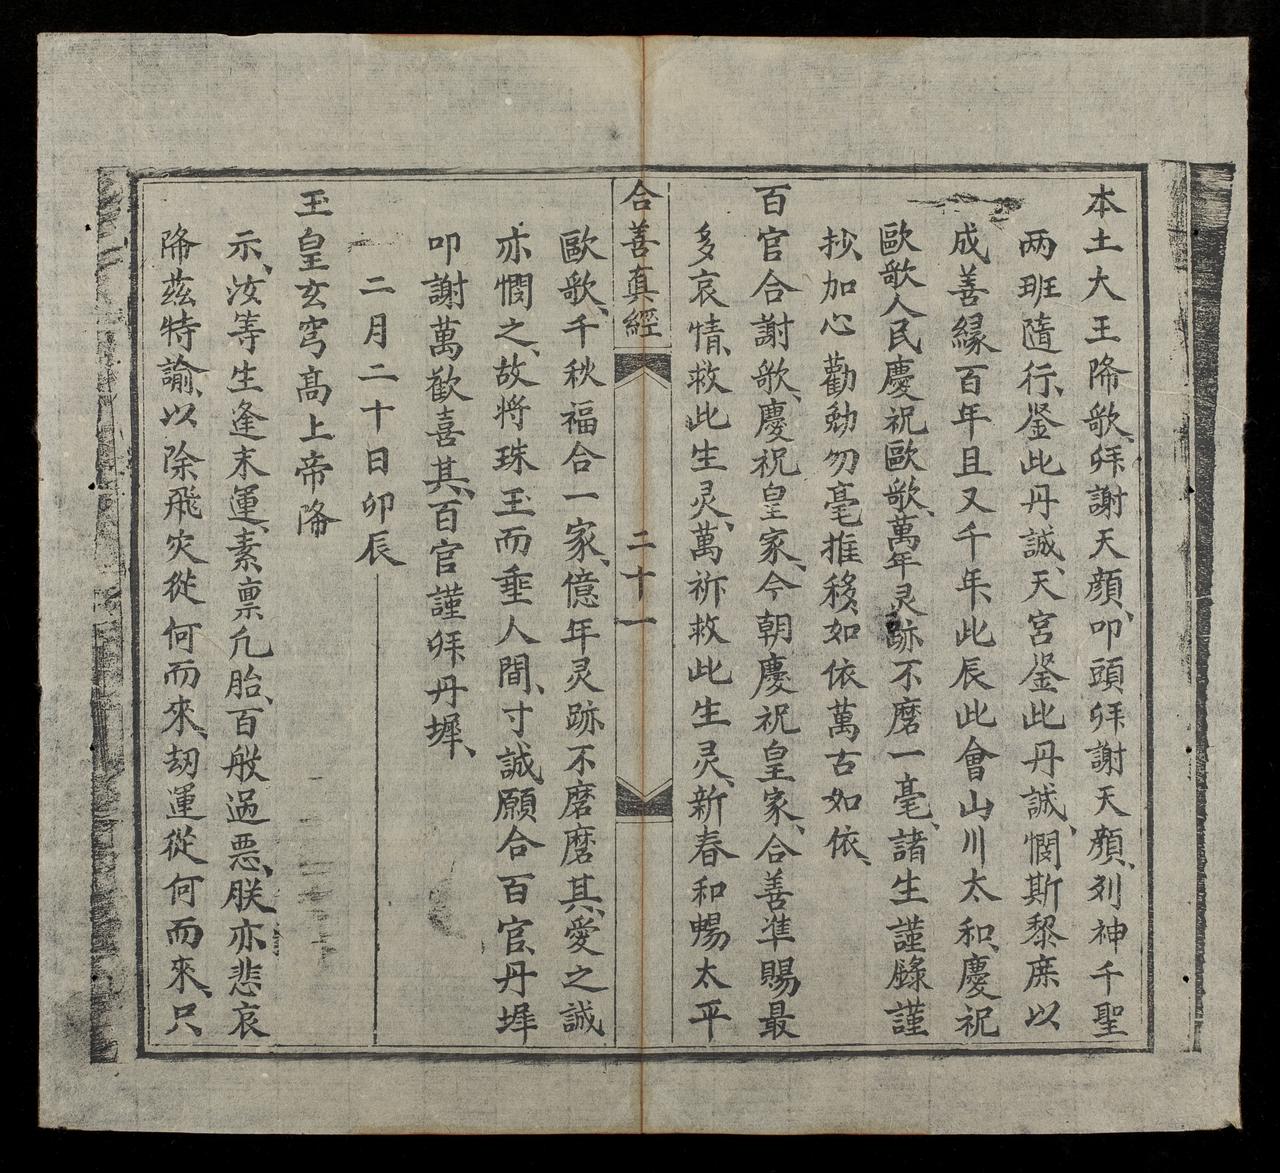 本土大王降歌、拜謝天顔、叩頭拜謝天顔、列神千聖
两班隨行、鉴此丹誠、天宮鉴此丹誠、憫斯黎庶以
成善緣百年且又千年、此辰此會山川太和、慶祝
歐歌人民慶祝歐歌、萬年灵跡不磨一毫、諸生謹錄謹
抄、加心勸勉勿毫推移、如依萬古如依、
百官合謝歌、慶祝皇家、今朝慶祝皇家、合善準賜最
多哀情、救此生灵、萬祈救此生灵、新春和暢太平
合善真經 二十一
歐歌、千秋福合一家、億年灵跡不磨磨其、愛之誠
亦憫之、故将珠玉而垂人間、寸誠願合百官、丹墀
叩謝萬歡喜其、百官謹拜丹墀、
二月二十日卯辰
玉皇玄穹高上帝降
示、汝等生逢末運、素禀凡胎、百般過悪、朕亦悲哀
降茲特諭、以除飛灾從何而來、刼運從何而來、只